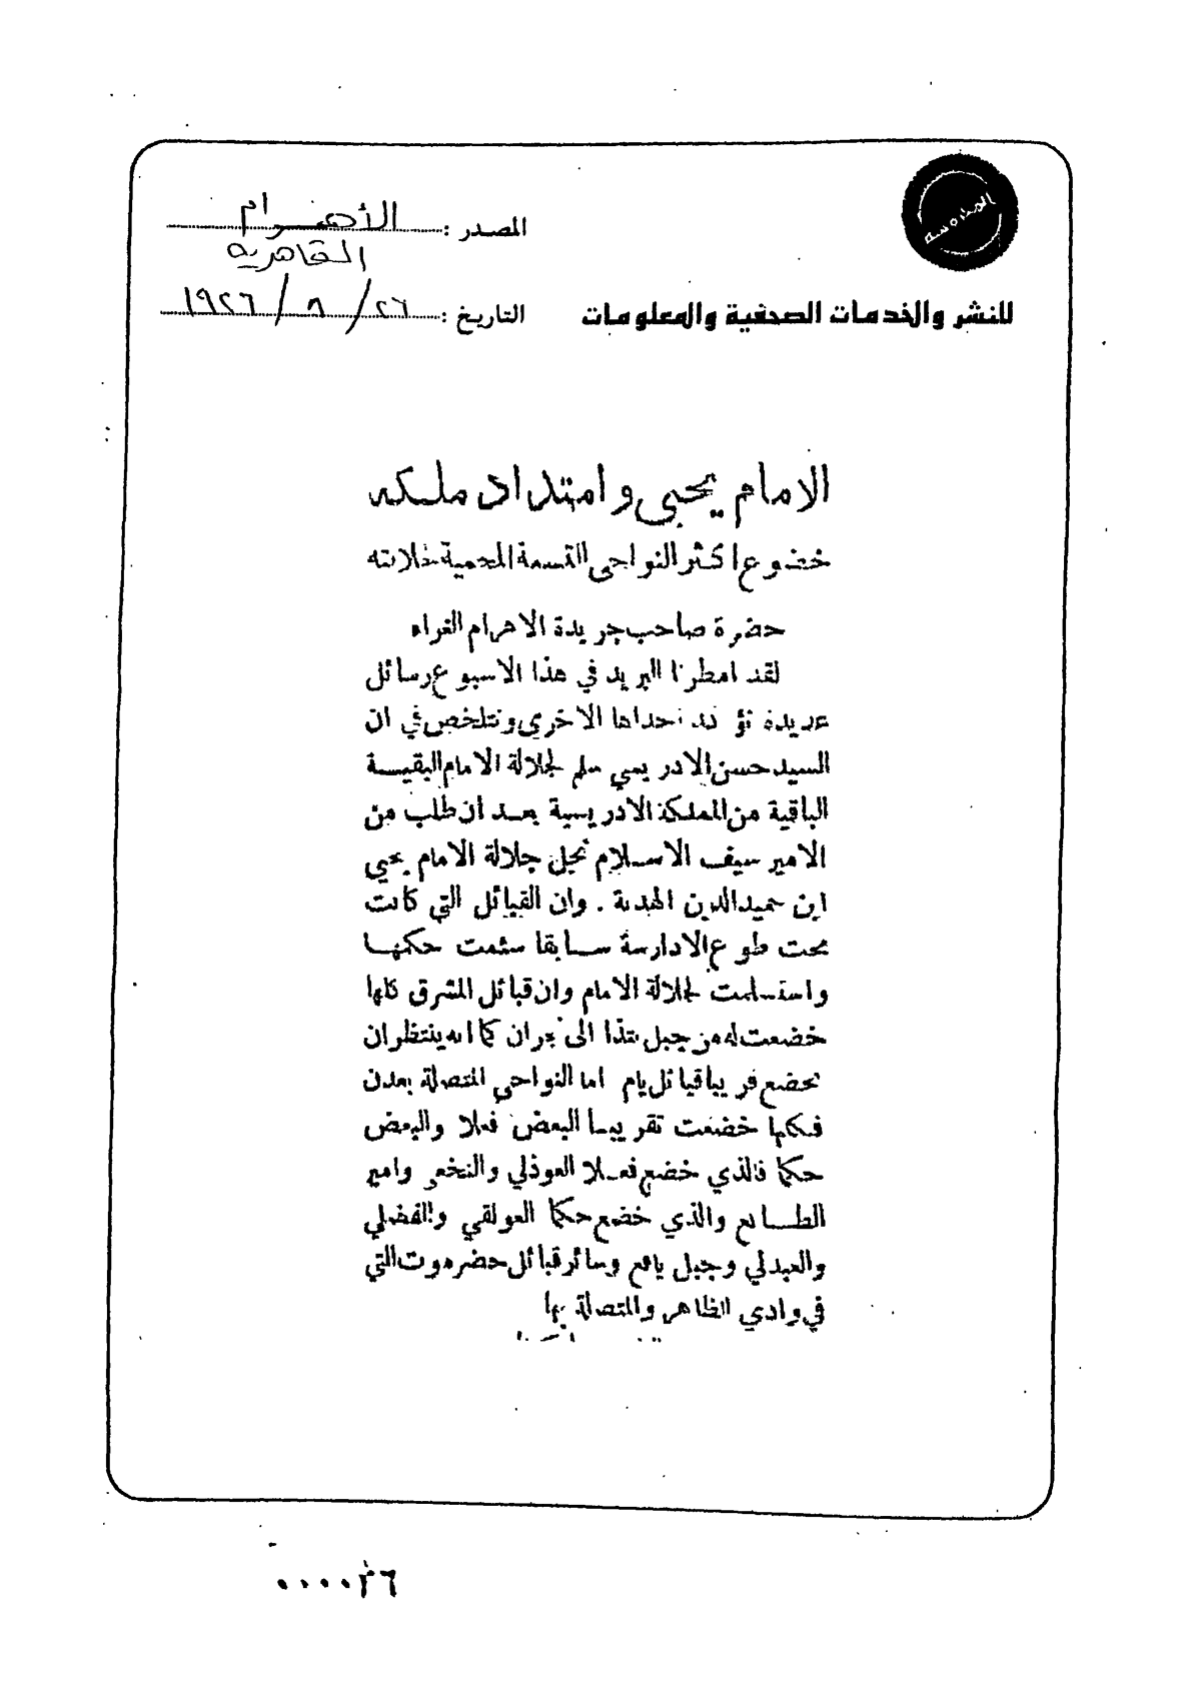 المصدر : الأهرام
القاهرية
للنشر والخدمات الصحفية والمعلومات
التاريخ : ٢٦ / ٨ / ١٩٢٦
الامام يحيى وامتداد ملكه
خضوع اكثر النواحي التسعة المحمية لجلالته
حضرة صاحب جريدة الاهرام الغراء
لقد امطرنا البريد في هذا الاسبوع رسائل
عديدة تؤكد احداها الاخرى وتتلخص في ان
السيد حسن الادريسي سلم لجلالة الامام البقيسة
الباقية من المملكة الادريسية بعد ان طلب من
الامير سيف الاسلام نجل جلالة الامام يحيى
ابن حميد الدين الهدنة . وان القبائل التي كانت
تحت طوع الادارسة سابقا سئمت حكمها
واستسلمت لجلالة الامام وان قبائل المشرق كلها
خضعت له من جبل الى نجران كما انه ينتظر ان
تخضع قريبا قبائل يام اما النواحي المتصلة بعدن
فكلها خضعت تقريبا البعض فعلا والبعض
حكما فالذي خضع فعلا العوذلي والنخعي وامير
الضالع والذي خضع حكما العولقي والفضلي
والعبدلي وجبل يافع وسائر قبائل حضرموت التي
في وادي الظاهر والمتصلة بها
٠٠٠٠٣٦